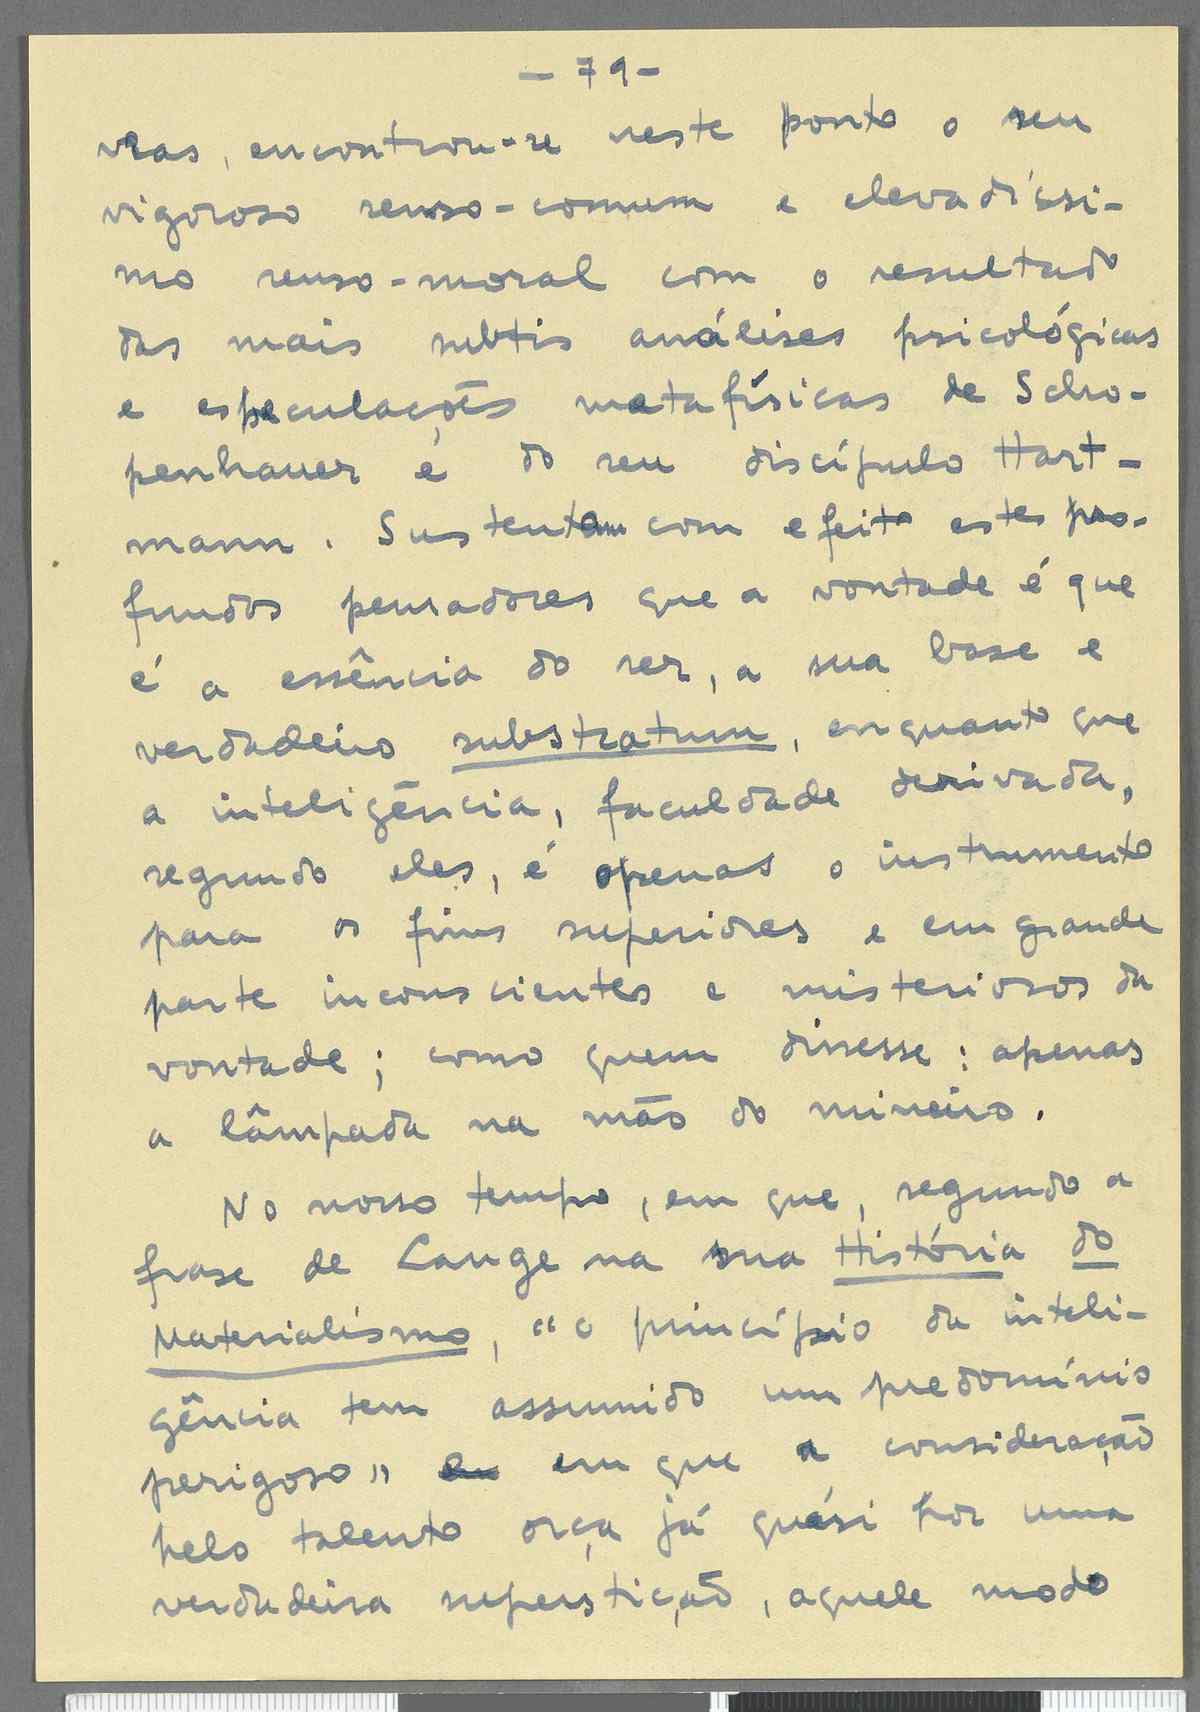 — 79 —
vras, encontrou-se neste ponto o seu
vigoroso senso-comum e elevadíssi-
mo senso-moral com o resultado
das mais subtis análises psicológicas
e especulações metafísicas de Scho-
penhauer e do seu discípulo Hart-
mann. Sustentam com efeito estes pro-
fundos pensadores que a vontade é que
é a essência do ser, a sua base e
verdadeiro substratum, enquanto que
a inteligência, faculdade derivada,
segundo eles, é apenas o instrumento
para os fins superiores e em grande
parte inconscientes e misteriosos da
vontade; como quem dissesse: apenas
a lâmpada na mão do mineiro.
No nosso tempo, em que, segundo a
frase de Lange na sua História do
Materialismo, "o princípio da inteli-
gência tem assumido um predomínio
perigoso" em que a consideração
pelo talento orça já quási por uma
verdadeira superstição, aquele modo